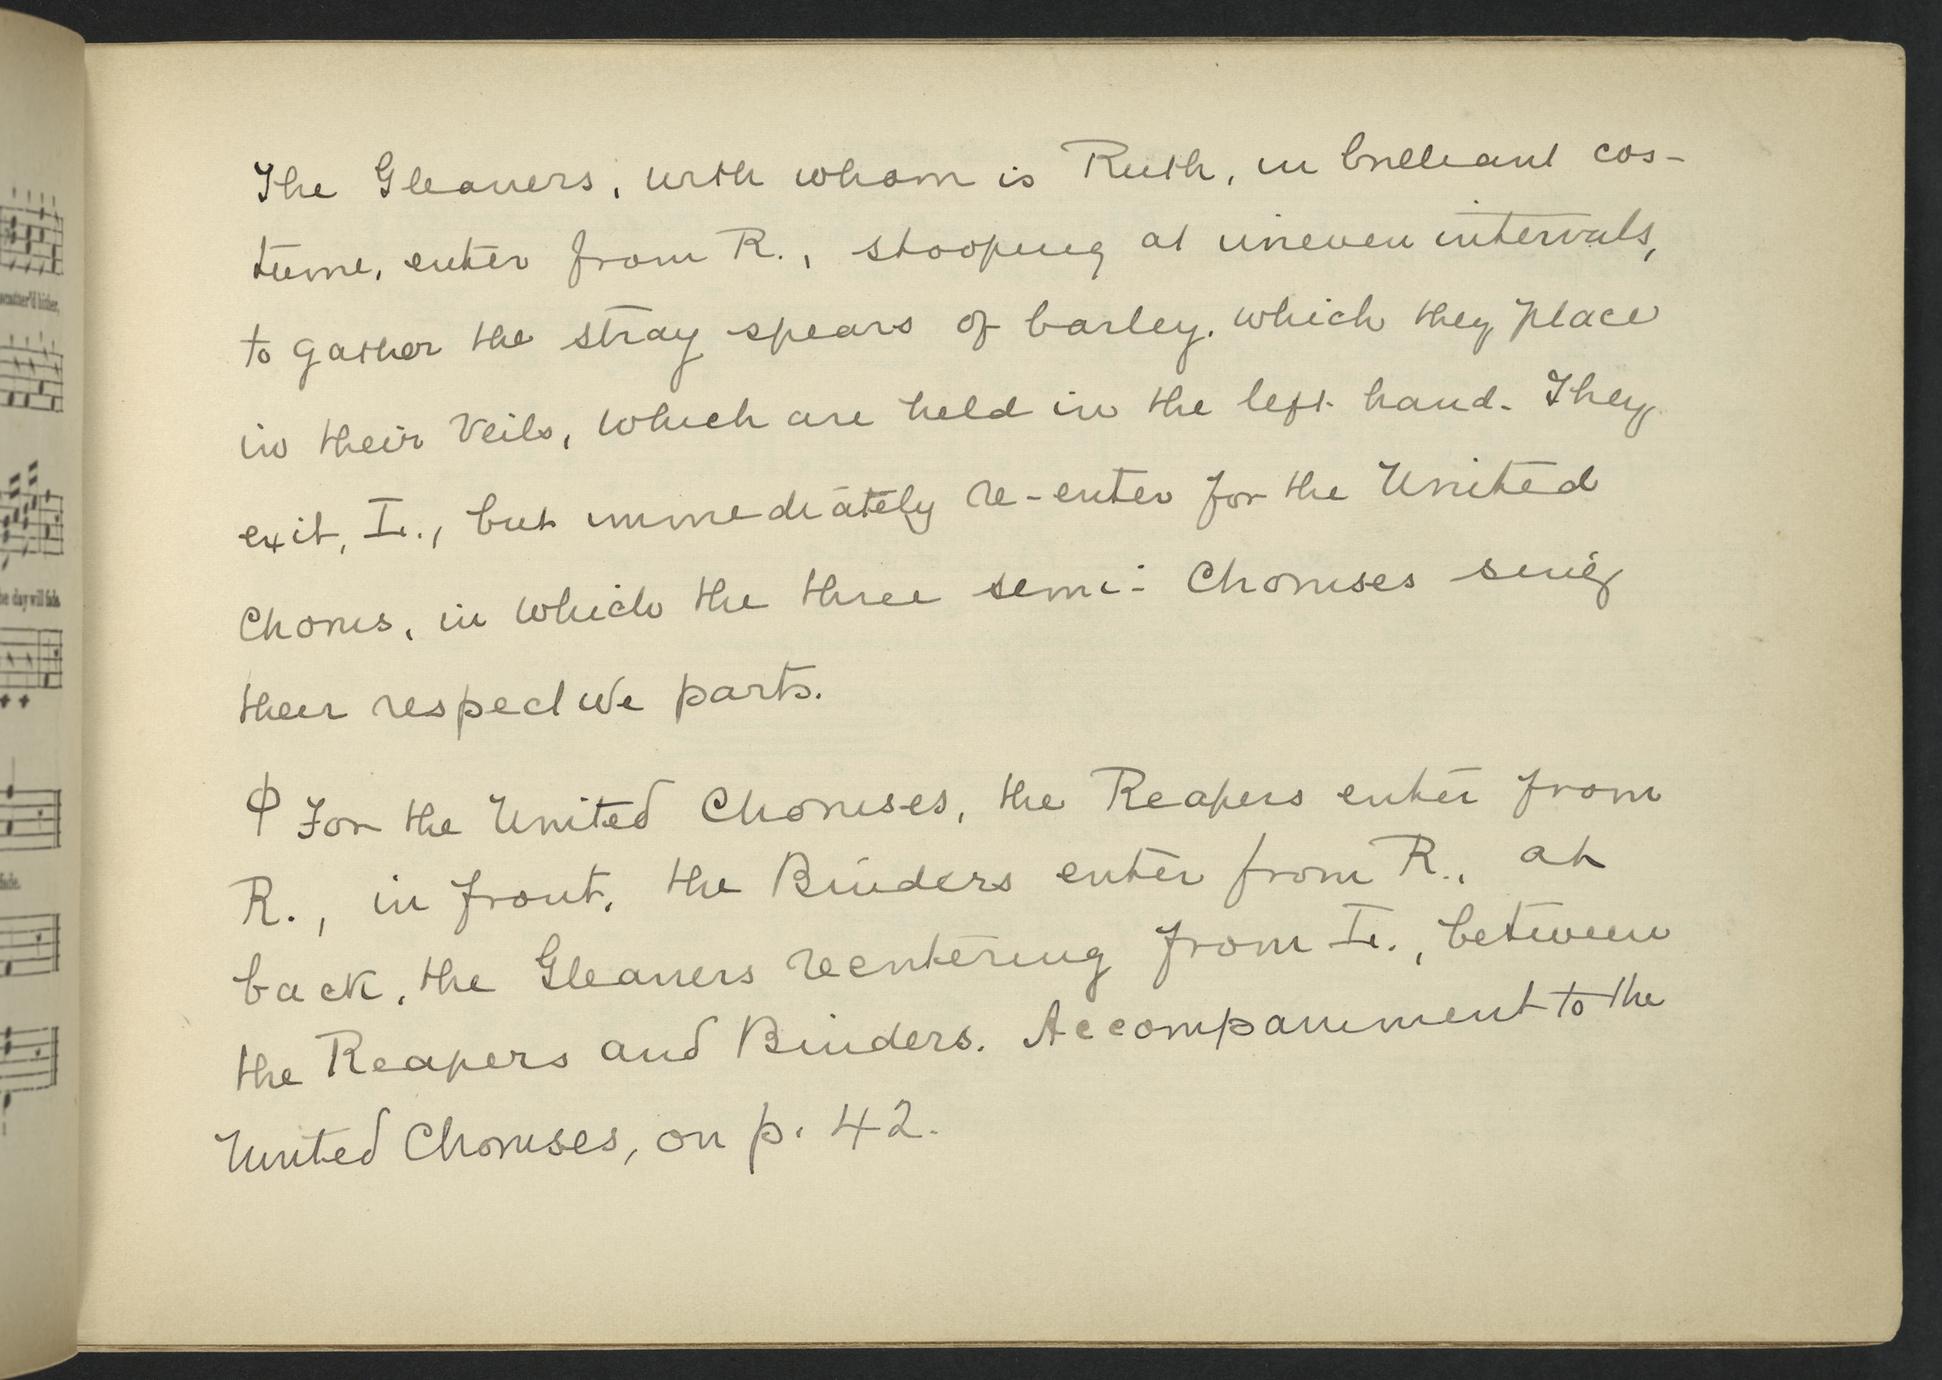 The Gleaners, with whom is Ruth, in brilliant cos-
tume, enter from R., stooping at uneven intervals,
to gather the stray spears of barley, which they place
in their veils, which are held in the left hand. They
exit, L., but immediately re-enter for the United
Chorus, in which the three semi-Choruses sing
their respective parts.
ф For the United Choruses, the Reapers enter from
R., in front, the Binders enter from R., at
back, the Gleaners reentering from L., between
the Reapers and Binders. Accompaniment to the
United Choruses, on p. 42.
scatter'd hither,
he day will fade.
fade.